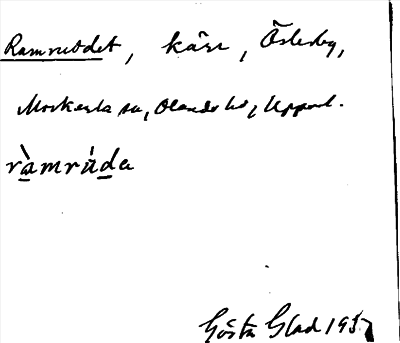 Ramruddet, kärr, Österby,
Morkarla sn, Olands hd, Uppsal.
ràmrúda
Gösta Glad 1937